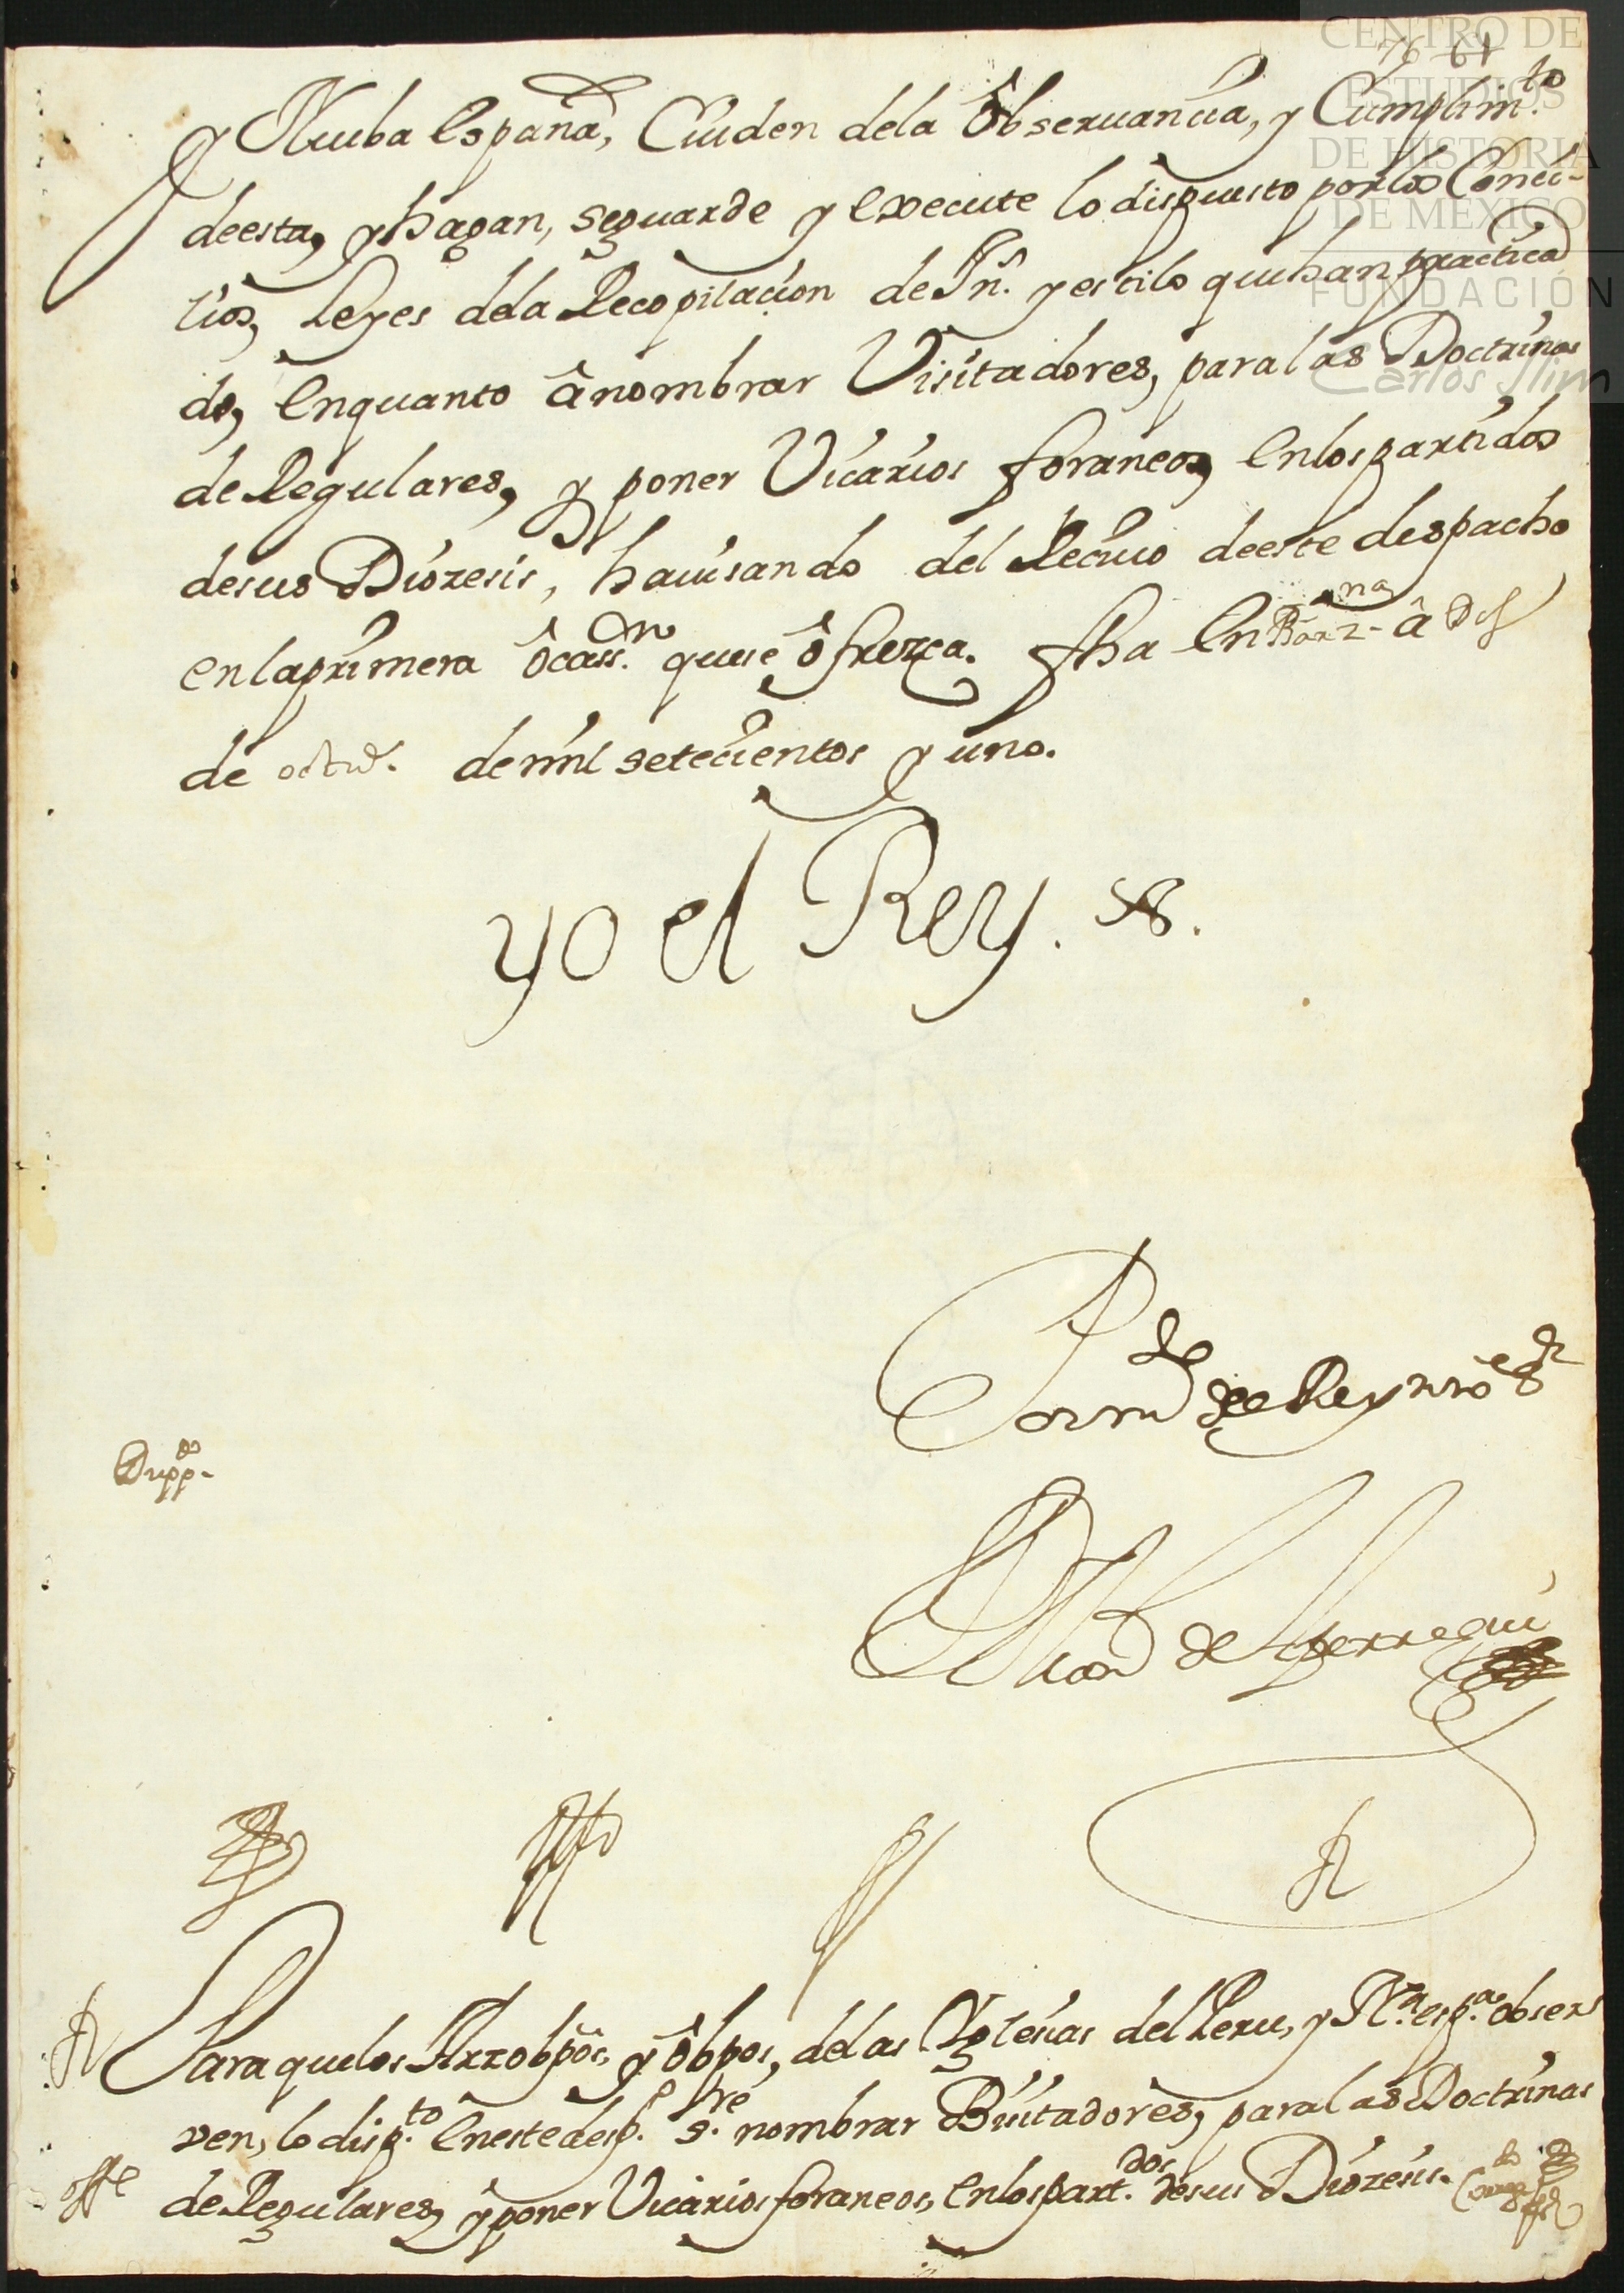 CENTRO DE
ESTUDIOS
DE HISTORIA
DE MÉXICO
FUNDACIÓN
Carlos Slim
76 61
y Nueba españa, Cuiden dela Observancia, y Cumplim.to
deesta, y hagan, seguarde y execute lo dispuesto porlos Conci-
lios, Leyes dela Recopilacion de Yn.s y estilo que han practica
do, Enquanto â nombrar Visitadores, paralas Doctrinas
de Regulares, y poner Vicarios foraneos, Enlos partidos
desus Diozesis, hauisando del Reciuo deeste despacho
enlaprimera ôcass.on quese ôfrezca. fha En Barz.na â dos
de octu.e demill setecientos y uno.
yo el Rey.
Por m.do del Rey nro s.r
Dupp.do
Para quelos Arzobpôs, y Ôbpos, delas Yglesias del Peru, y N.a esp.a obser
ven, lo disp.to Eneste desp.o s.re nombrar Bisitadores, paralas Doctrinas
de Regulares, y poner Vicarios foraneos, Enlos part.dos desus Diozesis.
offe